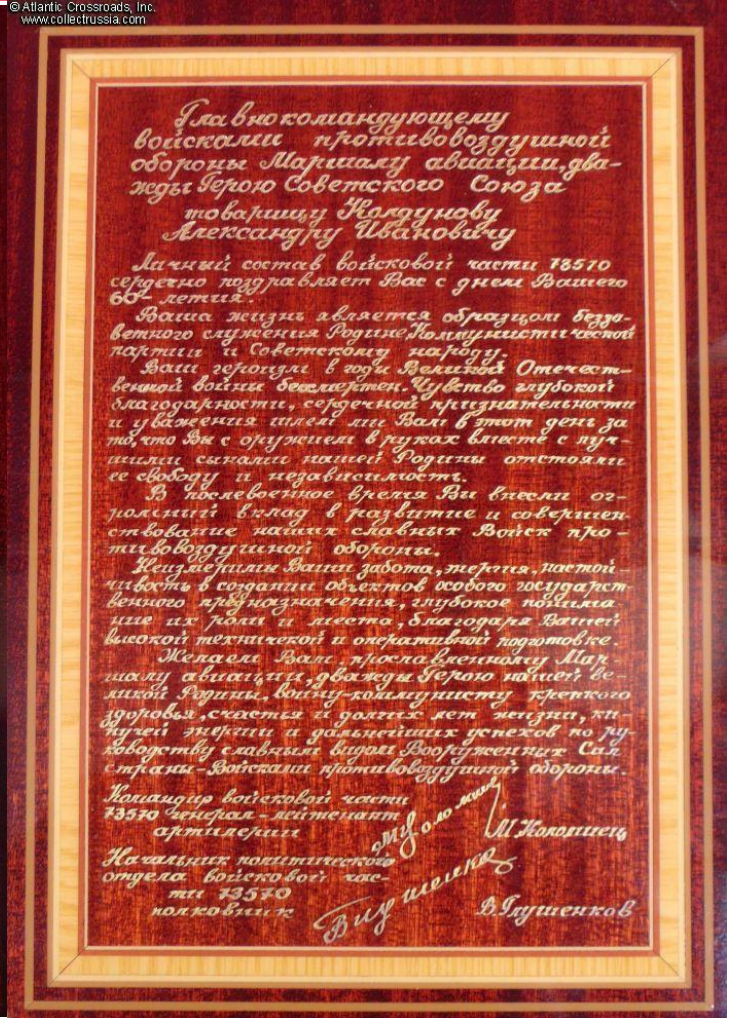 © Atlantic Crossroads, Inc.
www.collectrussia.com
Главнокомандующему
войсками противовоздушной
обороны Маршалу авиации, два-
жды Герою Советского Союза
товарищу Колдунову
Александру Ивановичу
Личный состав войсковой части 73570
сердечно поздравляет Вас с днем Вашего
60-летия.
Ваша жизнь является образцом безза-
ветного служения Родине, Коммунистической
партии и Советскому народу.
Ваш героизм в годы Великой Отечест-
венной войны бессмертен. Чувство глубокой
благодарности, сердечной признательности
и уважения шлем мы Вам в этот день за
то, что Вы с оружием в руках вместе с луч-
шими сынами нашей Родины отстояли
ее свободу и независимость.
В послевоенное время Вы внесли ог-
ромный вклад в развитие и совершен-
ствование наших славных Войск про-
тивовоздушной обороны.
Неизмеримы Ваши забота, энергия, настой-
чивость в создании объектов особого государст-
венного предназначения, глубокое понима-
ние их роли и места, благодаря Вашей
высокой технической и оперативной подготовке.
Желаем Вам, прославленному Мар-
шалу авиации, дважды Герою нашей ве-
ликой Родины, воину-коммунисту крепкого
здоровья, счастья и долгих лет жизни, ки-
пучей энергии и дальнейших успехов по ру-
ководству славным видом Вооруженных Сил
страны-Войсками противовоздушной обороны.
Командир войсковой части
73570 генерал-лейтенант
артиллерии
М. Коломиец
Начальник политического
отдела войсковой час-
ти 73570
полковник
В. Глушенков